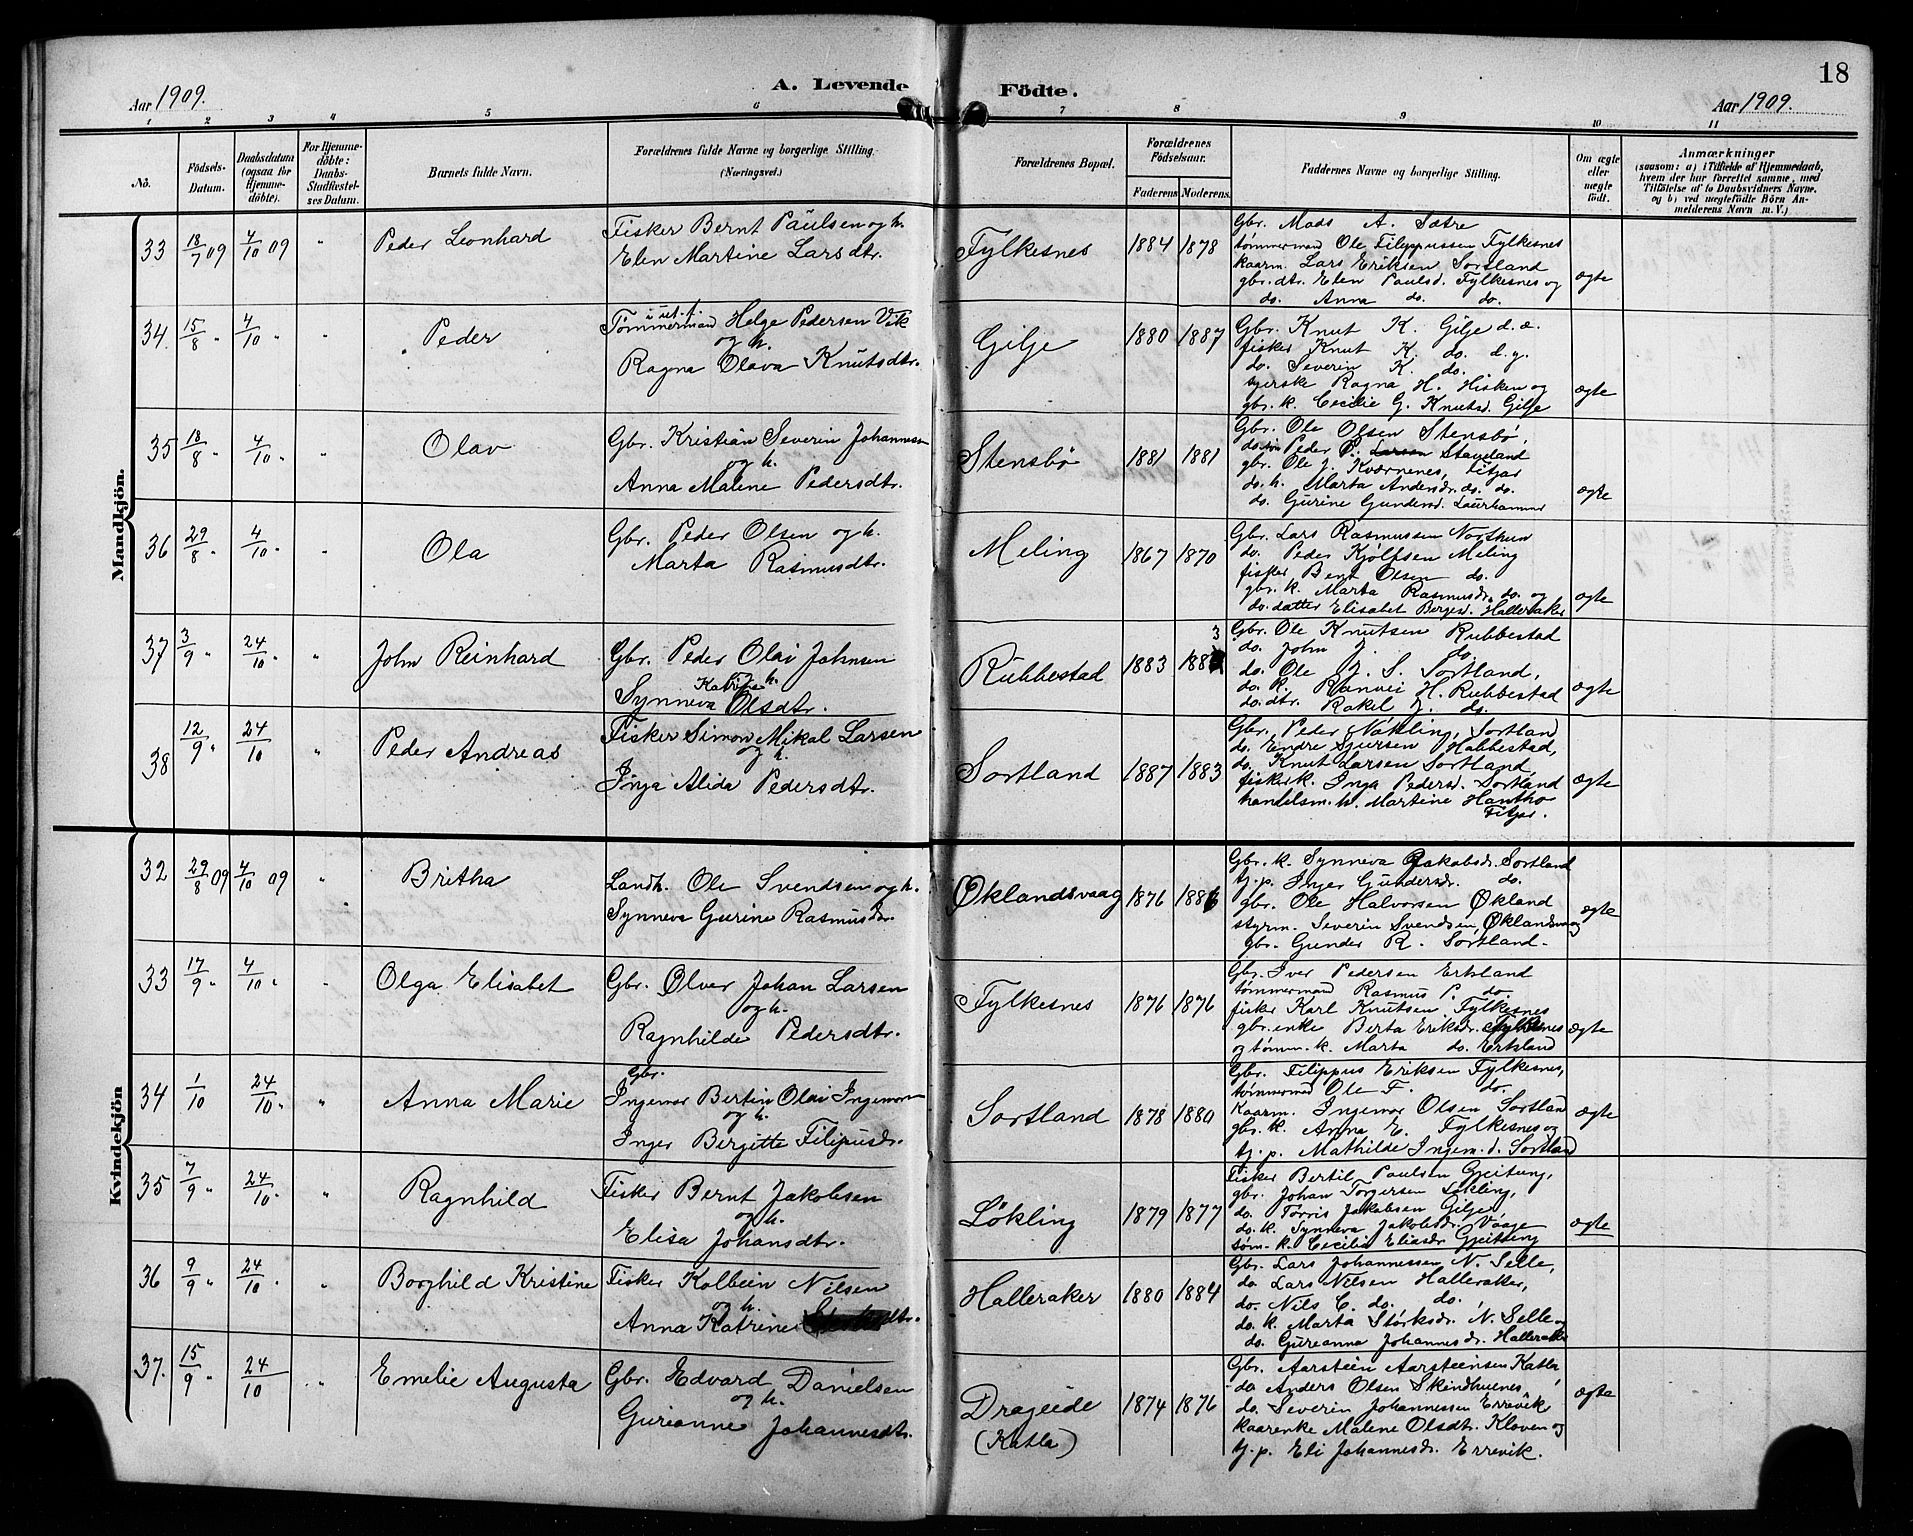 18
Aar 1909.
A. Levende Födte.
Aar 1909.
1 2 3 4 5 6 7 8 9 10 11
No.
Födsels-Datum.
Daabsdatum (ogsaa for Hjemmedöbte).
For Hjemmedöbte: Daabs-Stadfæstelses Datum.
Barnets fulde Navn.
Forældrenes fulde Navne og borgerlige Stilling. (Næringsvei.)
Forældrenes Bopæl.
Forældrenes Födselsaar.
Faderens. Moderens.
Faddernes Navne og borgerlige Stilling.
Om ægte eller uægte födt.
Anmærkninger
(saasom: a) i Tilfælde af Hjemmedaab, hvem der har forrettet samme, med Tilföielse af to Daabsvidners Navne. og b) ved uægtefödte Börn Anmelderens Navn m. V.)
Mandkjön.
33 18/7 09 4/10 09 " Peder Leonhard
Fisker Bernt Paulsen og h.
Elen Martine Larsdtr.
Fylkesnes 1884 1878
Gbr. Mads A. Sætre
tømmermand Ole Filippussen Fylkesnes
kaarm. Lars Eriksen Sortland
gbr. dtr. Elen Paulsd. Fylkesnes og
do. Anna do. do.
ægte
34. 15/8 " 4/10 " " Peder
Tømmermand Helge Pedersen Vik
og h.
Ragna Olava Knutsdtr.
Gilje 1880 1887
Gbr. Knut K. Gilje d. æ.
fisker Knut K. do. d. y.
do. Severin K. do.
syerske Ragna H. Hisken og
gbr. k. Cecilie G. Knutsd. Gilje
ægte
35 18/8 " 4/10 " " Olav
Gbr. Kristian Severin Johannesen
og h.
Anna Malene Pedersdtr.
Stensbø 1881 1881
Gbr. Ole Olsen Stensbø,
do. søn Peder P. Larsen Staveland
gbr. Ole J. Kværnenes, Fitjar
do. h. Marta Andersdr. do. do.
do. Gurine Gundersd. Laurhammer
ægte
36 29/8 " 4/10 " " Ola
Gbr. Peder Olsen og h.
Marta Rasmusdtr.
Meling 1867 1870
Gbr. Lars Rasmussen Northun
do. Peder Kjølfsen Meling
fisker Bent Olsen do.
gbr. k. Marta Rasmusdr. do. og
do. datter Elisabet Bergesd. Halleraker
ægte
37 3/9 " 24/10 " " John Reinhard
Gbr. Peder Olai Johnsen
og h.
Synneva Katrine Olsdtr.
Rubbestad 1883 1883
Gbr. Ole Knutsen Rubbestad
do. John J. do.
do. Ole J. S. Sortland,
do. k. Ranvei H. Rubbestad
do. dtr. Rakel J. do.
ægte
38 12/9 " 24/10 " Peder Andreas
Fisker Simon Mikal Larsen
og h.
Inga Alida Pedersdtr.
Sortland 1887 1883
Gbr. Peder Nökling, Sortland
do. Endre Sjursen Habbestad,
do. Knut Larsen Sortland,
fisker k. Inga Pedersd. Sortland
handelsm. h. Martine Hantho
Fitjar.
ægte
Kvindekjön
32 29/8 09 4/10 09 " Britha
Landh. Ole Svendsen og h.
Synneva Gurine Rasmusdr.
Øklandsvaag 1876 1886
Gbr. k. Synneva Jakobsdr. Sortland
tj. p. Inger Gundersdr. do.
gbr. Ole Halvorsen Økland
styrm. Severin Svendsen, Øklandsvaag
gbr. Gunder R. Sortland.
ægte
33 17/9 " 4/10 " " Olga Elisabet
Gbr. Ølver Johan Larsen
og h.
Ragnhilde Pedersdtr.
Fylkesnes 1876 1876
Gbr. Iver Pedersen Erkland
tømmermand Rasmus P. do.
fisker Karl Knutsen Fylkesnes
gbr. enke Berta Eriksdr. Fylkesnes
og tømm. k. Marta do. Erksland
ægte
34 1/10 24/10 " " Anna Marie
Gbr.
Ingemar Bertin Olai Ingemarsen
og h.
Inger Bergitte Filipusdr.
Sortland 1878 1880
Gbr. Filippus Eriksen Fylkesnes,
tømmermd Ole F. do.
Kaarm. Ingemar Olsen Sortland
gbr. k. Anna E. Fylkesnes og
tj. p. Mathilde Ingem. d. Sortland
ægte
35 7/9 " 24/10 " " Ragnhild
Fisker Bernt Jakobsen
og h.
Elisa Johansdtr.
Løkling 1879 1877
Fisker Bertil Paulsen Gjeitung,
gbr. Johan Torgersen Løkling,
do. Torris Jakobsen Gilje,
do. k. Synneva Jakobsdr. Vaage
tøm. k. Cecilia Eliasdr Gjeitung
ægte
36 9/9 " 24/10 " Borghild Kristine
Fisker Kolbein Nilsen
og h.
Anna Katrine
Halleraker 1880 1884
Gbr. Lars Johannessen N. Selle,
do. Lars Nilsen Halleraker,
do. Nils C. do. do.
do. k. Marta Størksdr. N. Selle og
do. Gureanna Johannesdr. Halleraker
37. 15/9 " 24/10 " Emelie Augusta
Gbr. Edvard Danielsen
og h.
Gureanne Johannesdtr.
Drageide (Katla) 1874 1876
Gbr. Aarstein Aarsteinsen Katla
do Anders Olsen Skindhuenes,
do. Severin Johannessen Errevik,
kaarenke Malene Olsdtr. Kloven og
tj. p. Eli Johannesdr. Errevik.
ægte